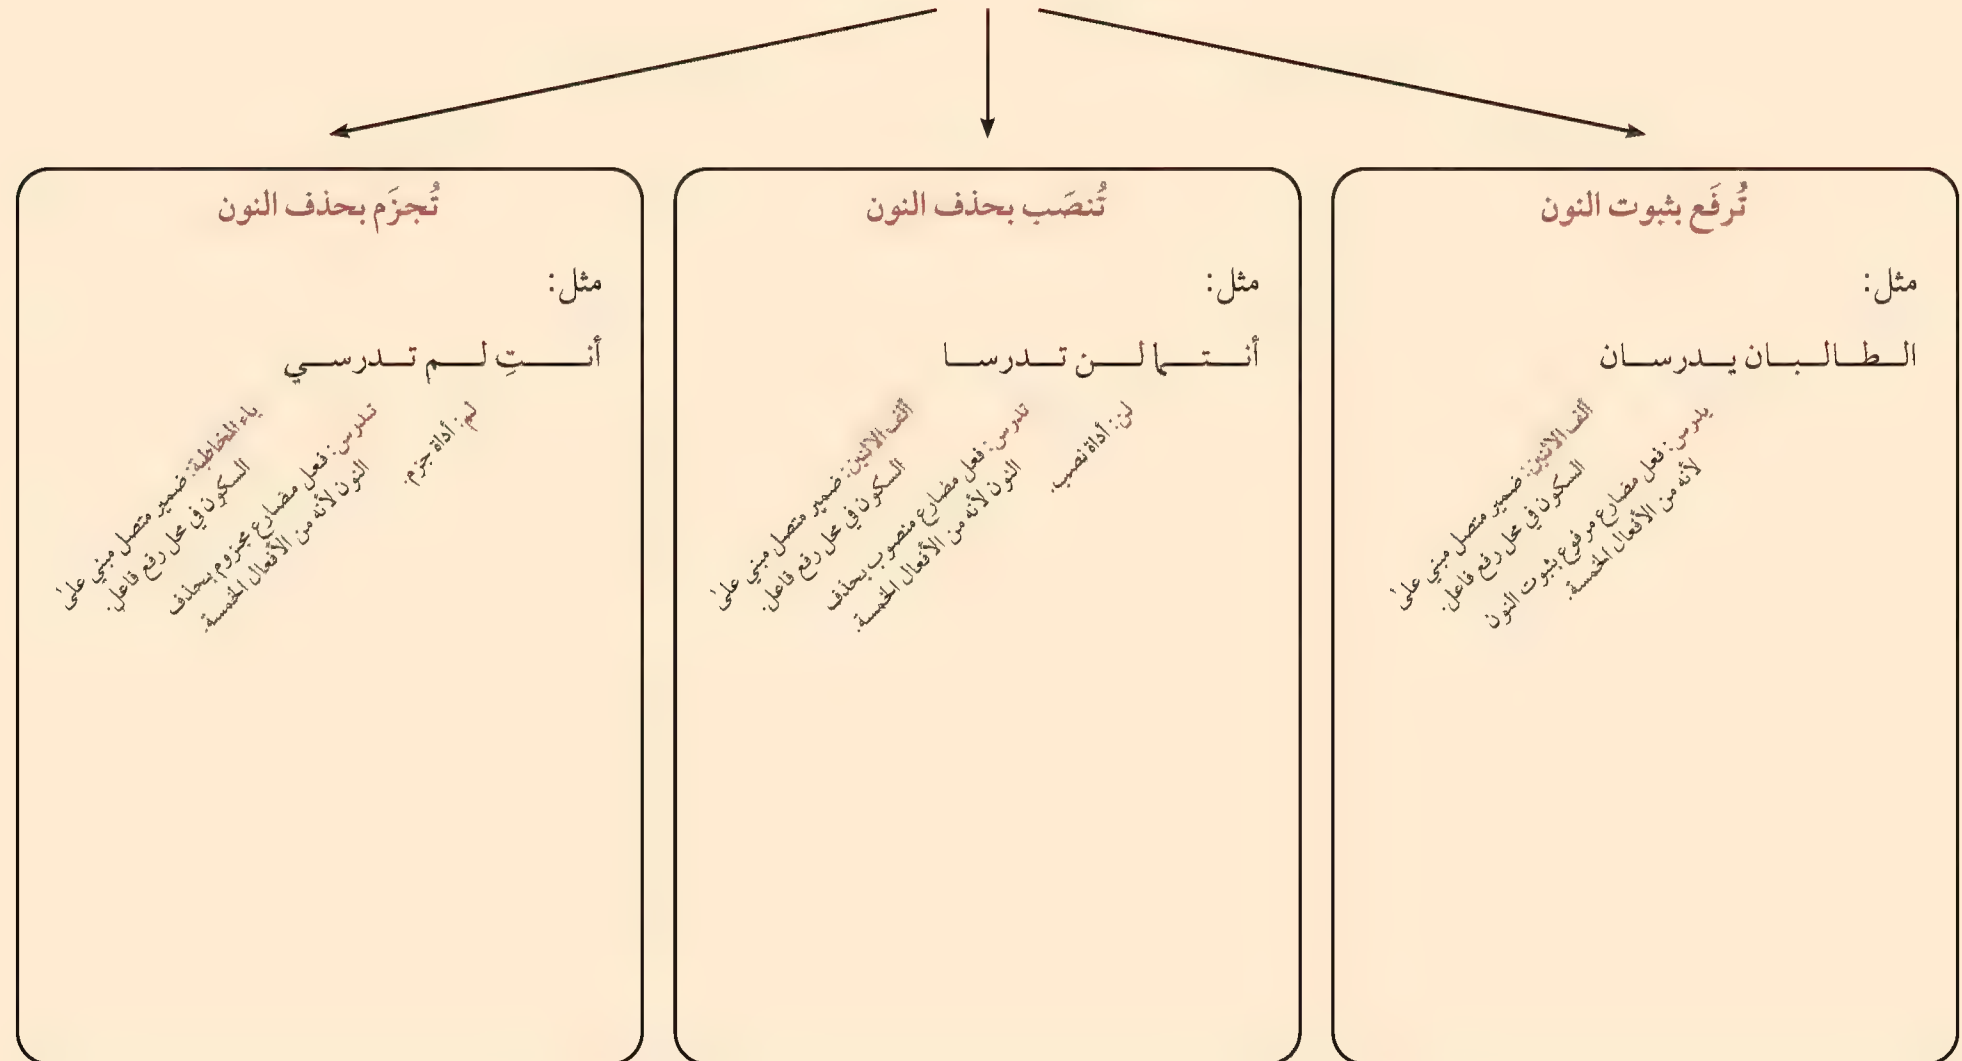 تُرفَع بثبوت النون
مثل:
الطالبان يدرسان
يدرس: فعل مضارع مرفوع بثبوت النون
لأنه من الأفعال الخمسة.
ألف الاثنين: ضمير متصل مبني على
السكون في محل رفع فاعل.
تُنصَب بحذف النون
مثل:
أنتما لن تدرسا
لن: أداة نصب.
تدرس: فعل مضارع منصوب بحذف
النون لأنه من الأفعال الخمسة.
ألف الاثنين: ضمير متصل مبني على
السكون في محل رفع فاعل.
تُجزَم بحذف النون
مثل:
أنتِ لم تدرسي
لم: أداة جزم.
تدرس: فعل مضارع مجزوم بحذف
النون لأنه من الأفعال الخمسة.
ياء المخاطبة: ضمير متصل مبني على
السكون في محل رفع فاعل.